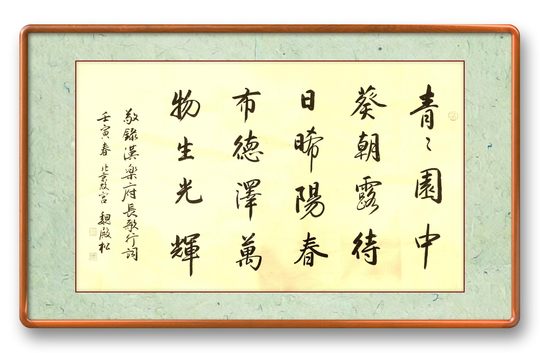 青〻園中
葵朝露待
日晞陽春
布德澤萬
物生光輝
敬錄漢樂府長歌行詞
壬寅春 北京故宮 魏殿松